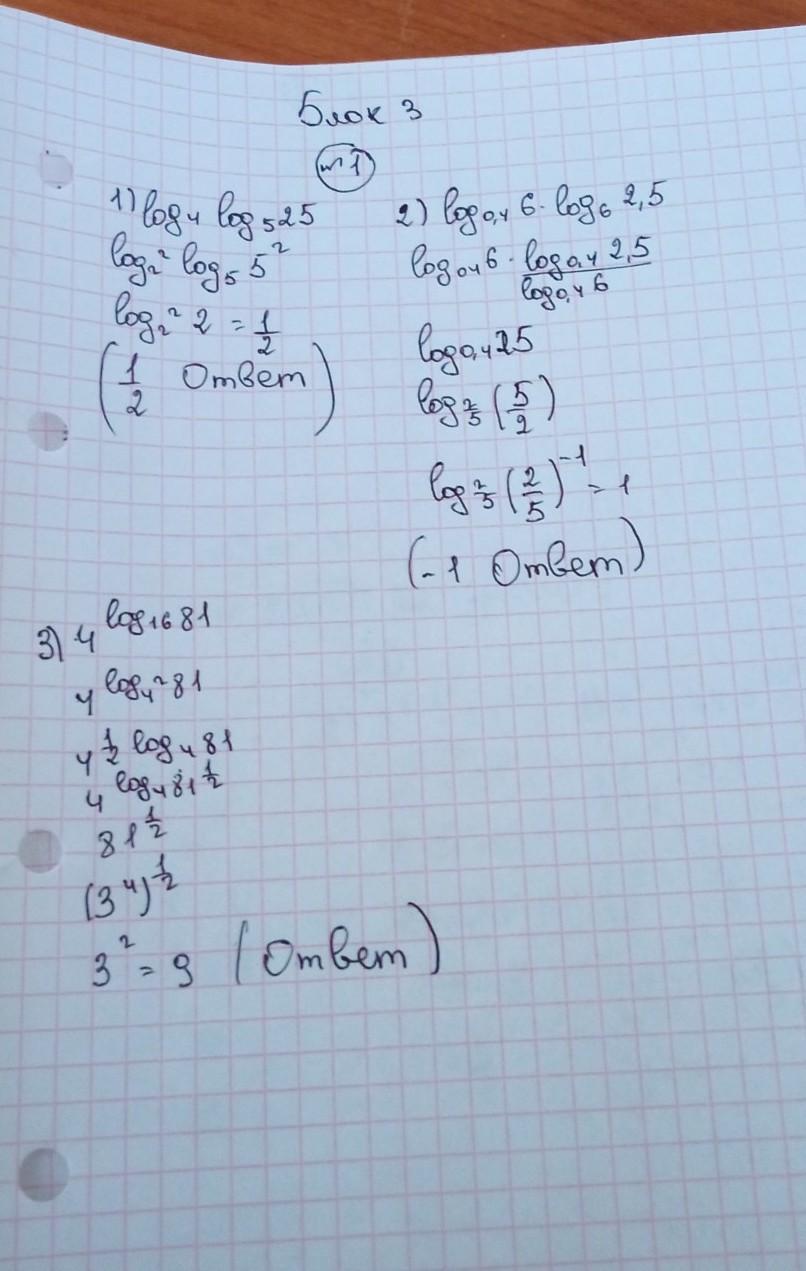 Блок 3
№1
1) log₄ log₅25
log₂² log₅ 5²
log₂² 2 = 1/2
(1/2 Ответ)
2) log₀,₄ 6 · log₆ 2,5
log₀,₄ 6 · log₀,₄ 2,5 / log₀,₄ 6
log₀,₄ 25
log_2/5 (5/2)
log_2/5 (2/5)⁻¹ = 1
(-1 Ответ)
3) 4^log₁₆ 81
4^log₄² 81
4^1/2 log₄ 81
4^log₄ 81^1/2
81^1/2
(3⁴)^1/2
3² = 9 (Ответ)